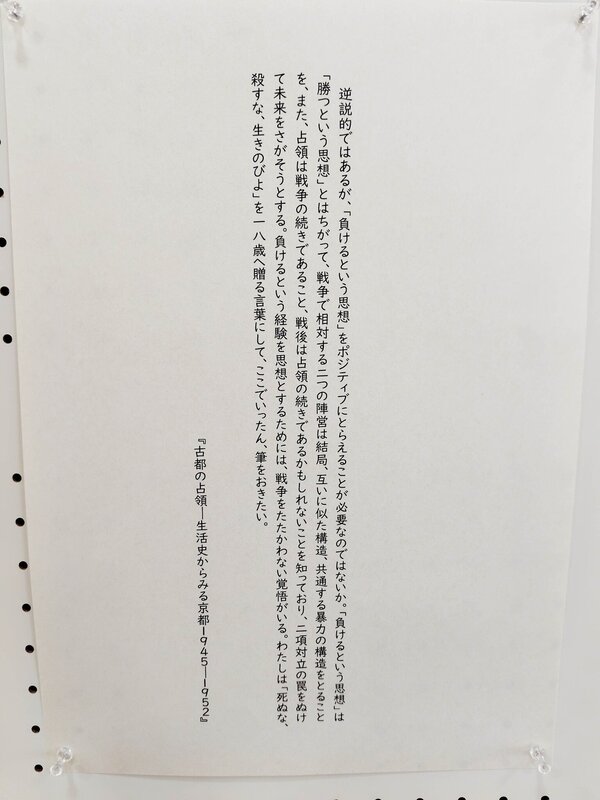 逆説的ではあるが、「負けるという思想」をポジティブにとらえることが必要なのではないか。「負けるという思想」は
「勝つという思想」とはちがって、戦争で相対する二つの陣営は結局、互いに似た構造、共通する暴力の構造をとること
を、また、占領は戦争の続きであること、戦後は占領の続きであるかもしれないことを知っており、二項対立の罠をぬけ
て未来をさがそうとする。負けるという経験を思想とするためには、戦争をたたかわない覚悟がいる。わたしは「死ぬな、
殺すな、生きのびよ」を一八歳へ贈る言葉にして、ここでいったん、筆をおきたい。
『古都の占領―生活史からみる京都1945―1952』